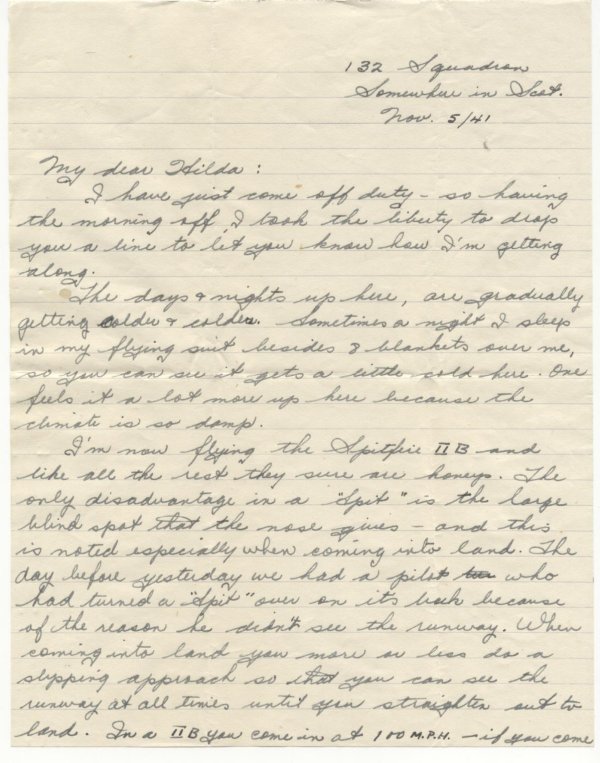 132 Squadron
Somewhere in Scot.
Nov. 5/41
My dear Hilda :
I have just come off duty - so having
the morning off, I took the liberty to drop
you a line to let you know how I'm getting
along.
The days & nights up here, are gradually
getting colder & colder. Sometimes a night I sleep
in my flying suit besides 8 blankets over me,
so you can see it gets a little cold here. One
feels it a lot more up here because the
climate is so damp.
I'm now flying the Spitfire IIB and
like all the rest they sure are honeys. The
only disadvantage in a "Spit" is the large
blind spot that the nose gives - and this
is noted especially when coming into land. The
day before yesterday we had a pilot who
had turned a "Spit" over on it's back because
of the reason he didn't see the runway. When
coming into land you more or less do a
slipping approach so that you can see the
runway at all times until you straighten out to
land. In a IIB you come in at 100 M.P.H. - if you come